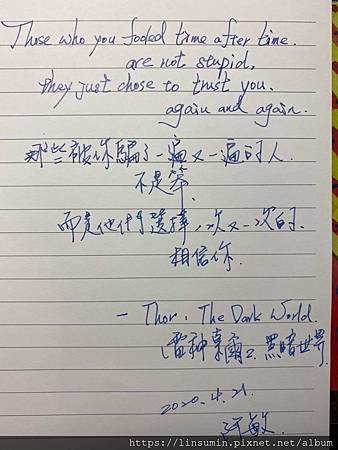 Those who you fooled time after time.
are not stupid,
they just chose to trust you.
again and again.
那些被你騙了一遍又一遍的人
不是笨.
而是他们選擇,一次又一次的.
相信你.
- Thor: The Dark World.
雷神索爾2.黑暗世界.
2020.4.21.
阿敏.
https://linsumin.pixnet.net/album